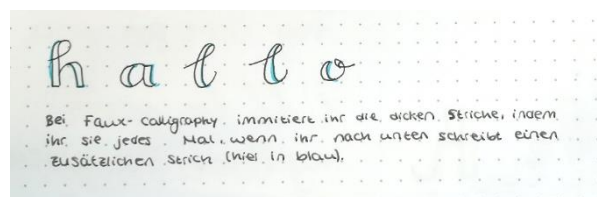 h a l l o
Bei Faux-calligraphy immitiert ihr die dicken Striche, indem
ihr sie jedes Mal, wenn ihr nach unten schreibt einen
zusätzlichen Strich (hier in blau).